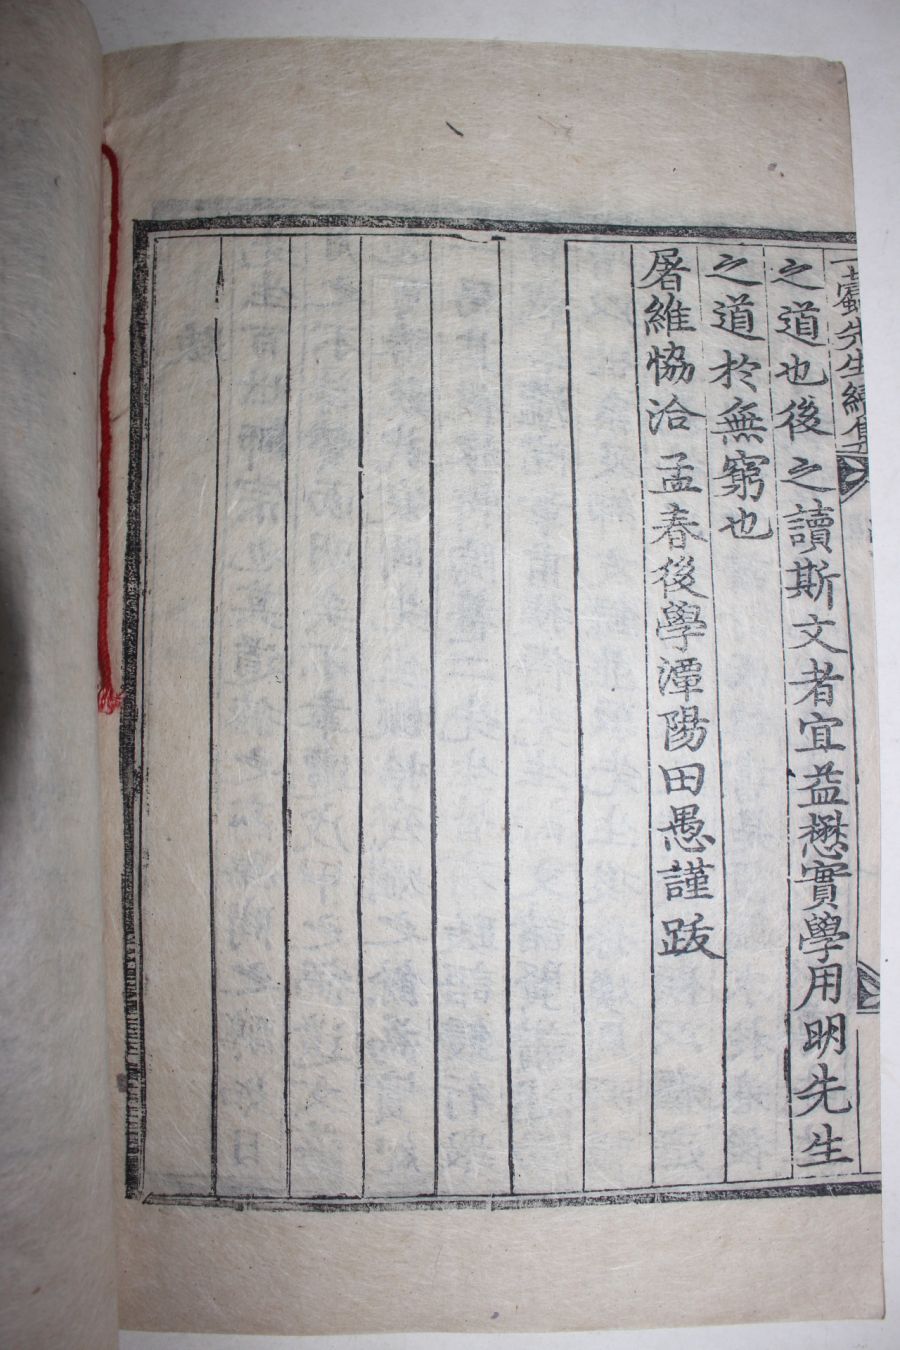 一蠹先生續集
之道也後之讀斯文者宜益懋實學用明先生
之道於無窮也
屠維恊洽孟春後學潭陽田愚謹跋